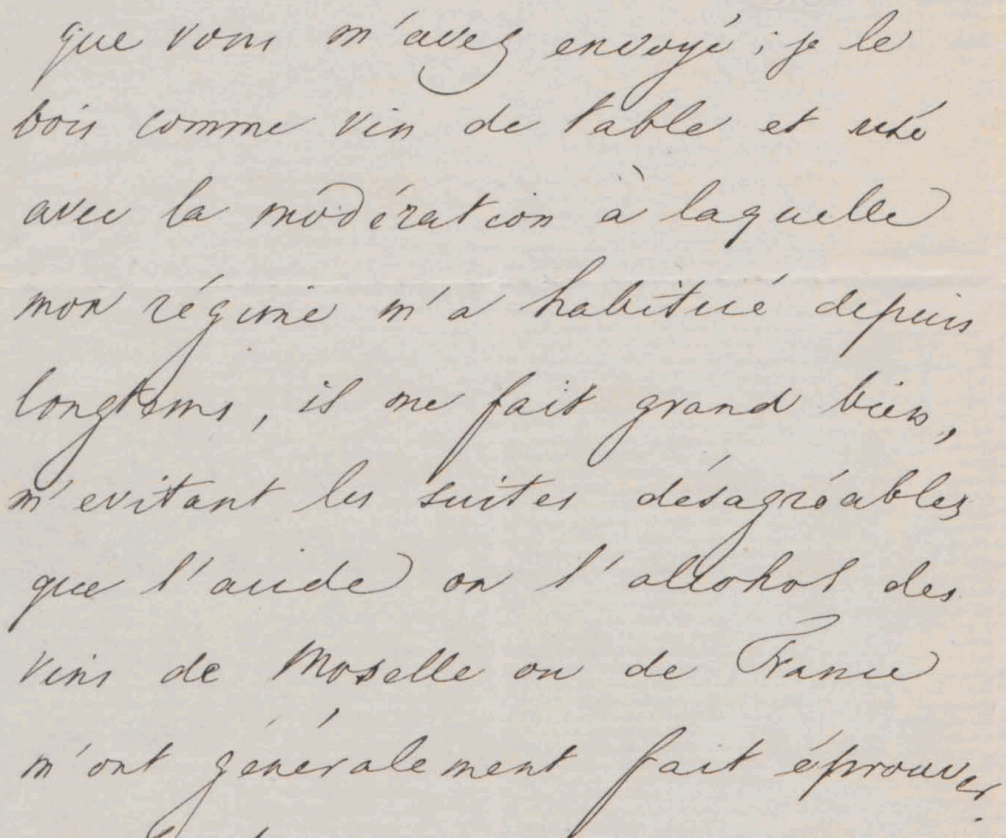 que vous m'avez envoyé ; je le
bois comme vin de table et usé
avec la modération à laquelle
mon régime m'a habitué depuis
longtems, il me fait grand bien,
m'evitant les suites désagréables
que l'acide ou l'alcohol des
vins de Moselle ou de France
m'ont généralement fait éprouver.